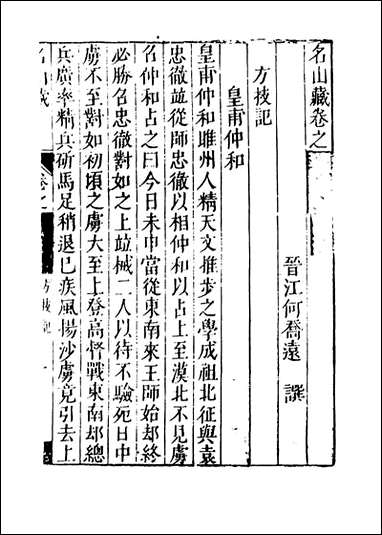 名山藏卷之
晉江何喬遠 譔
方技記
皇甫仲和
皇甫仲和睢州人精天文推步之學成祖北征與袁
忠徹竝從師忠徹以相仲和以占上至漠北不見虜
召仲和占之曰今日未申當從東南來王師始却終
必勝召忠徹對如之上竝械二人以待不驗死日中
虜不至對如初頃之虜大至上登高督戰東南却總
兵廣率精兵斫馬足稍退已疾風揚沙虜竟引去上
名山藏
卷之
方技記